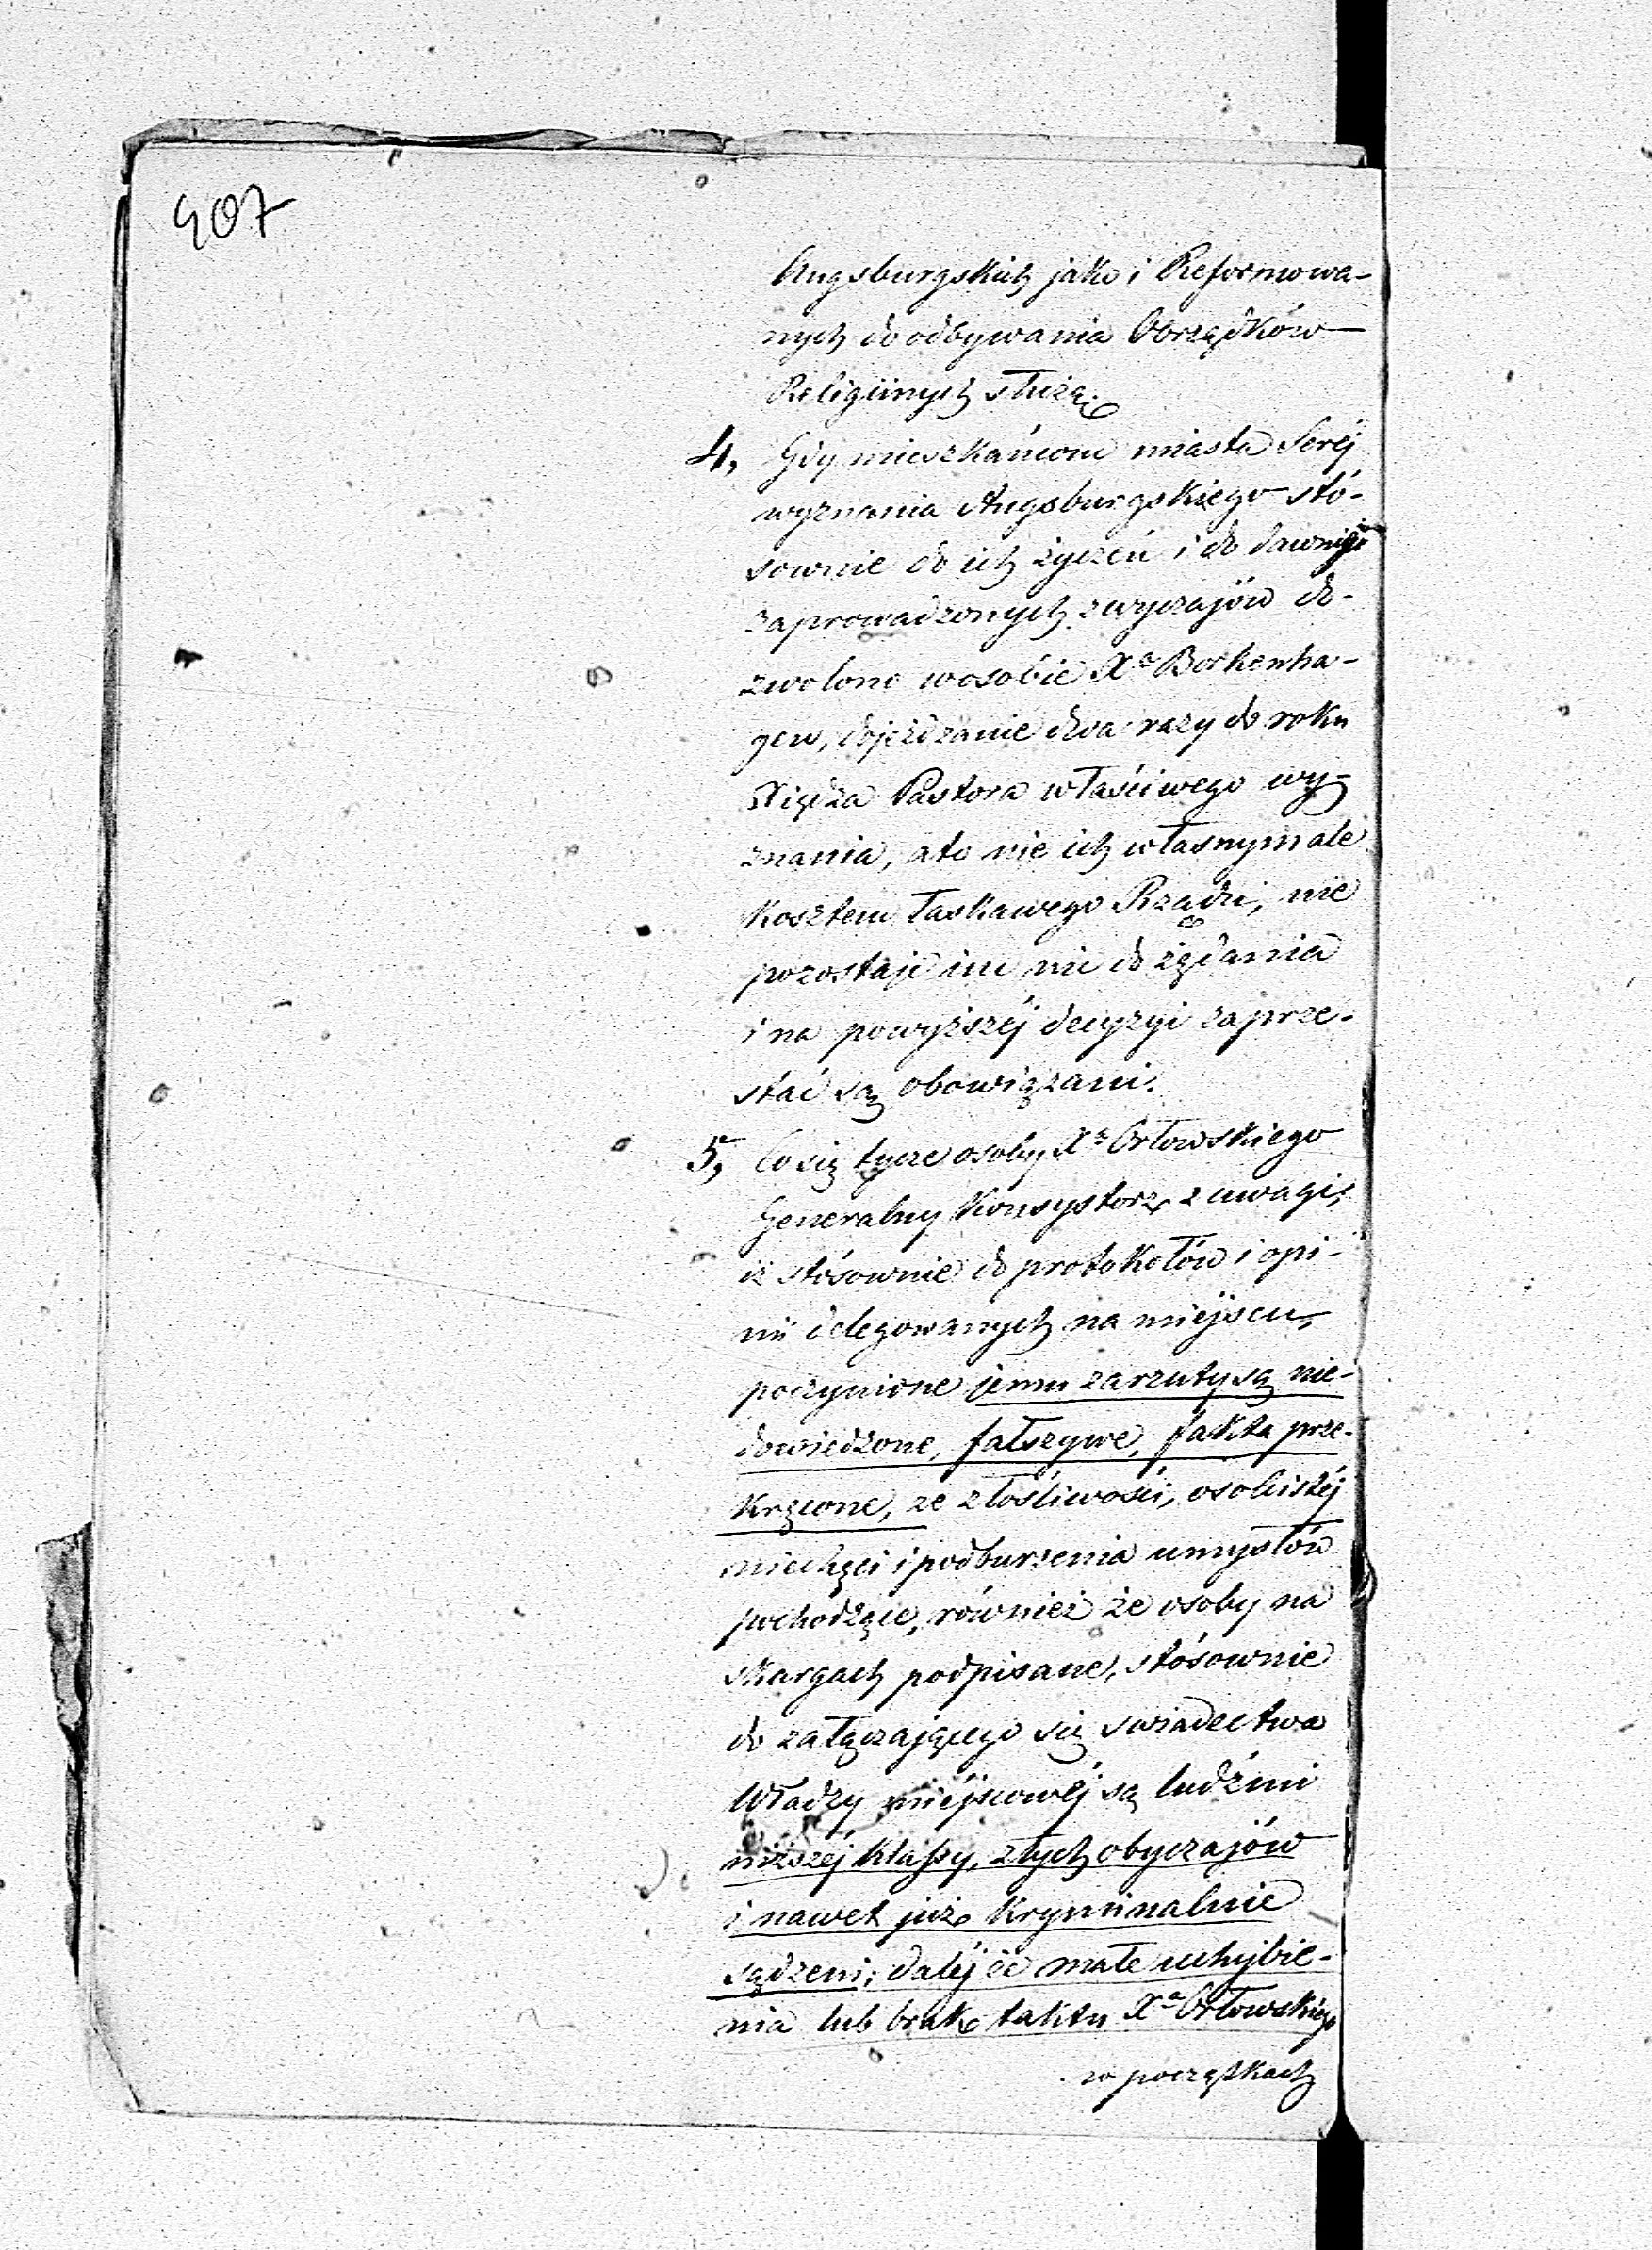 407
Augsburgskich jako i Reformowa-
nych do odbywania Obrządków
Religiinych służą.
4, Gdy mieszkańcom miasta Serej
wyznania Augsburgskiego stó-
sownie do ich życzeń i do dawniej
zaprowadzonych zwyczajów do-
zwolono w osobie Xa Borkenha-
gen, dojeżdżanie dwa razy do roku
Xiędza Pastora właściwego wy-
znania, a to nie ich własnym ale
kosztem łaskawego Rządu, nie
pozostaje im nic do żądania
i na powyższéj decyzyi zaprze-
stać są obowiązani.
5, Co się tycze osoby Xa Orłowskiego
Generalny Konsystorz z uwagi,
iż stósownie do protokołów i opi-
nii delegowanych na miejscu,
poczynione jemu zarzuty są nie-
dowiedzone, fałszywe, fakta prze-
kręcone, ze złośliwości, osobistéj
niechęci i podburzenia umysłów
pochodzące, również że osoby na
skargach podpisane, stósownie
do załączającego się swiadectwa
Władzy miéjscowéj są ludźmi
niższéj klassy, złych obyczajów
i nawet już kryminalnie
sądzeni; daléj że małe uchybie-
nia lub brak taktu Xa Orłowskiego
w początkach